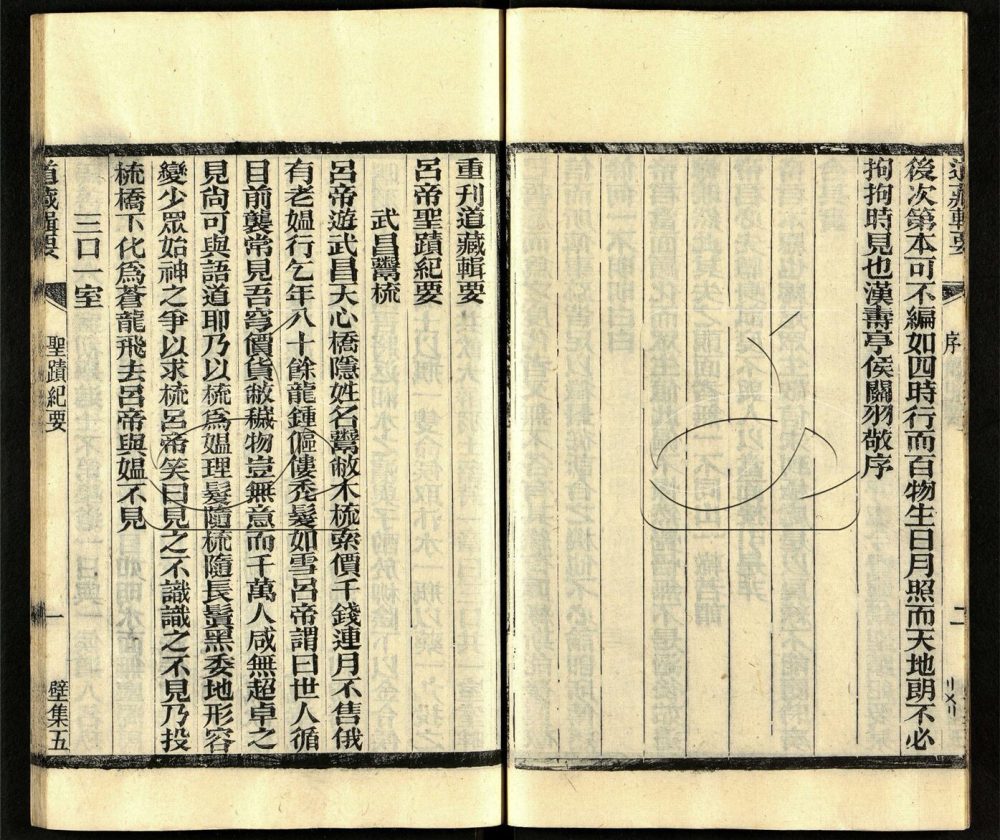 道藏輯要
序
二
後次第本可不編如四時行而百物生日月照而天地朗不必
拘拘時見也漢壽亭侯關羽敬序
重刊道藏輯要
呂帝聖蹟紀要
武昌鬻梳
呂帝遊武昌天心橋隱姓名鬻敝木梳索價千錢連月不售俄
有老媼行乞年八十餘龍鍾傴僂禿髮如雪呂帝謂曰世人循
目前襲常見吾穹價貨敝穢物豈無意而千萬人咸無超卓之
見尙可與語道耶乃以梳爲媼理髮隨梳隨長鬒黑委地形容
變少眾始神之爭以求梳呂帝笑曰見之不識識之不見乃投
梳橋下化爲蒼龍飛去呂帝與媼不見
三口一室
道藏輯要
聖蹟紀要
一
壁集五